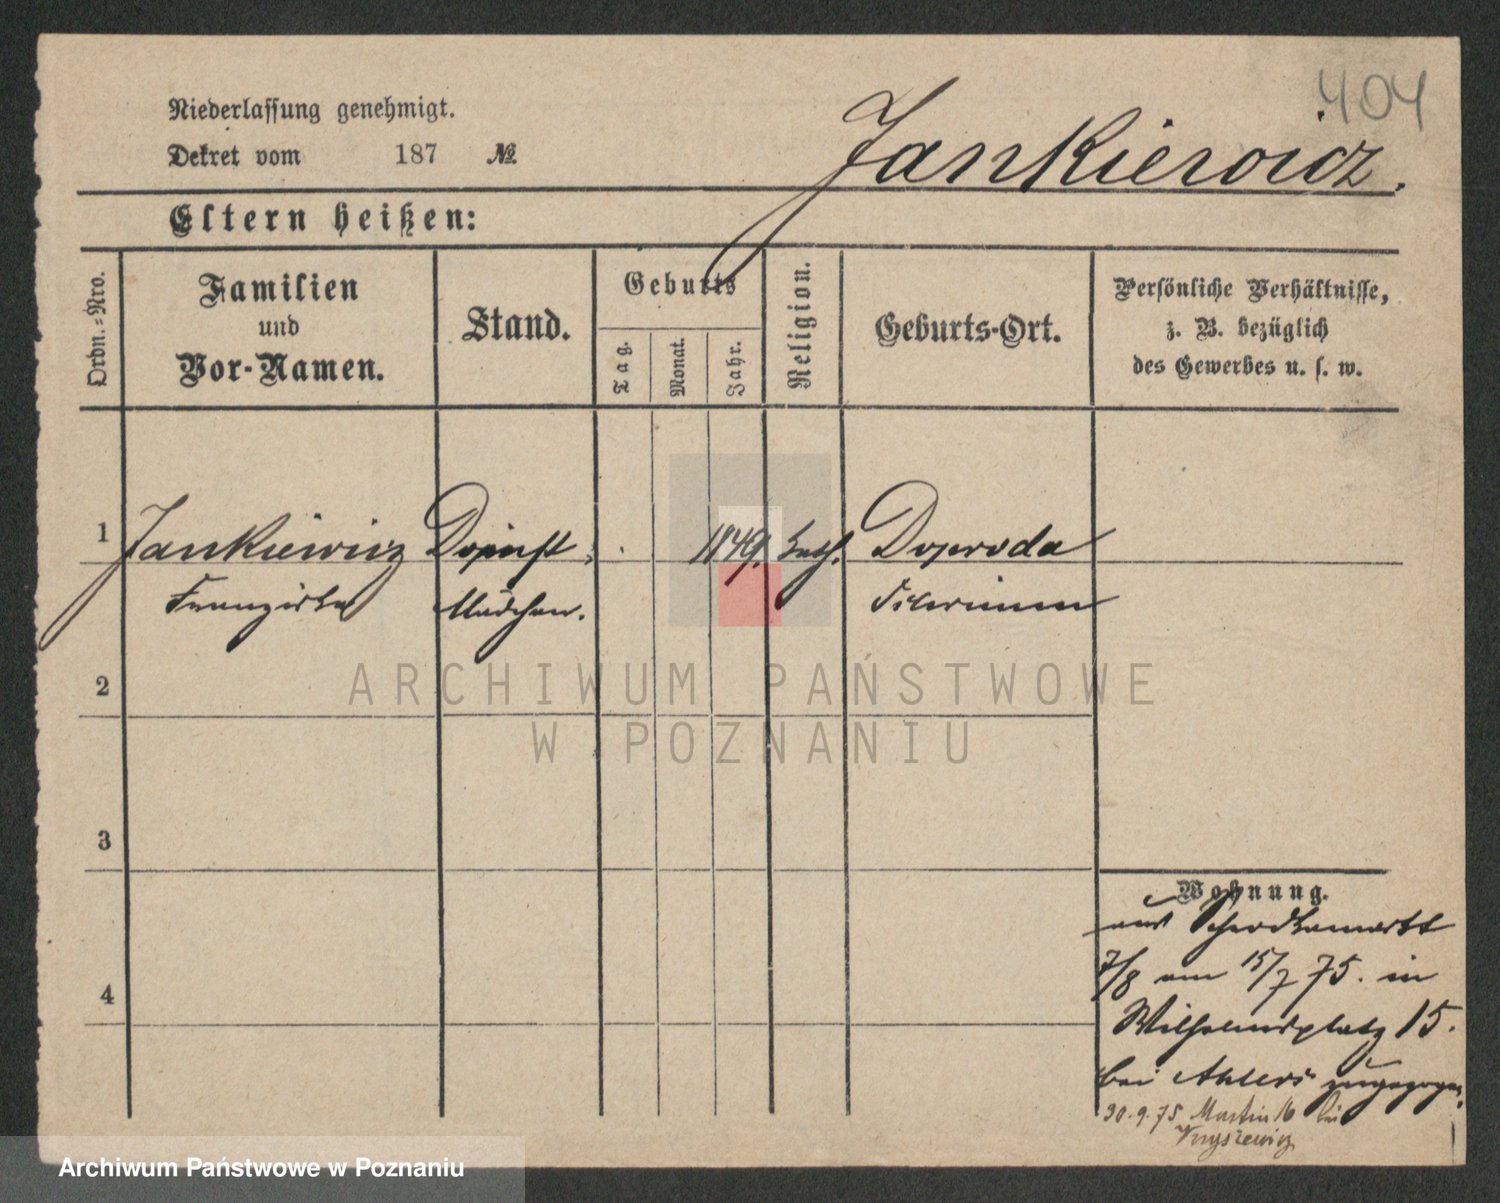 404
Niederlassung genehmigt.
Dekret vom 187 №
Jankiewicz.
Eltern heißen:
Ordn.-Nro.
Familien
und
Vor-Namen.
Stand.
Geburts
Tag.
Monat.
Jahr.
Religion.
Geburts-Ort.
Persönliche Verhältnisse,
z. B. bezüglich
des Gewerbes u. s. w.
1
Jankiewicz Dienst 1849. kath.
Franziska Mädchen.
2
ARCHIWUM PAŃSTWOWE
W POZNANIU
3
4
Wohnung.
aus
7/8 am 15/7 75. in
Wilhelmsplatz 15.
bei zugezogen.
30.9.75 Martin 16 bei
Archiwum Państwowe w Poznaniu